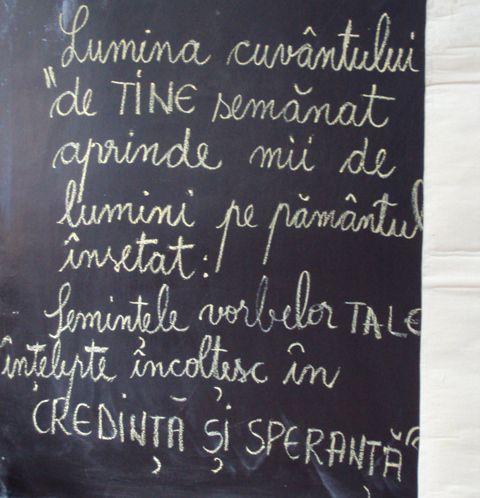 Lumina cuvântului
"de TINE semănat
aprinde mii de
lumini pe pământul
însetat:
Semințele vorbelor TALE
înțelepte încolțesc în
CREDINȚĂ ȘI SPERANȚĂ"